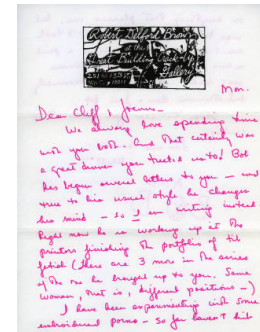 Robert Delford Brown
at the
Great Building Crack-Up
Gallery
251 W 13th St
Mon.
Dear Cliff & Joann –
We always love spending time
with you both. And that certainly was
a great dinner you treated us to! Bob
has begun several letters to you – and
true to his usual style he changes
his mind – so I am writing instead
Right now he is working up at the
printers finishing the portfolio of tit
fetish (there are 3 more in the series
of the one he brought up to you. Same
woman, that is, different positions –)
I have been experimenting with some
embroidered pornos – so far haven't hit